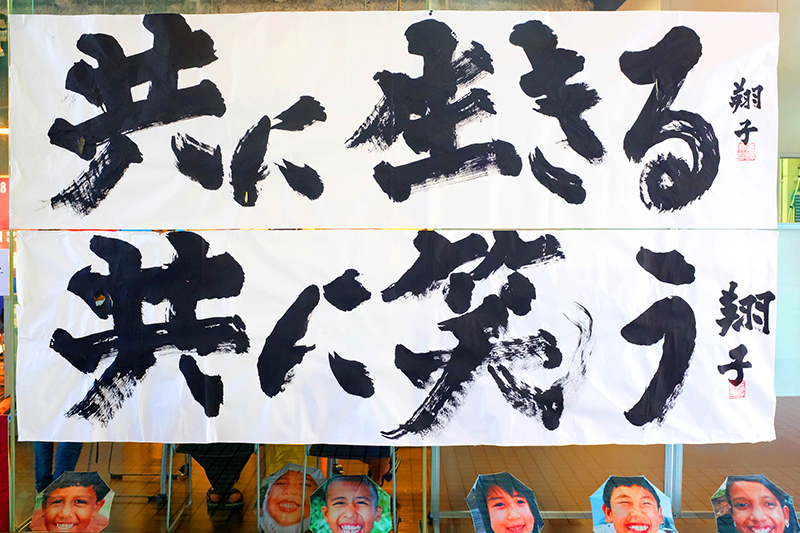 共に生きる
翔子
共に笑う
翔子